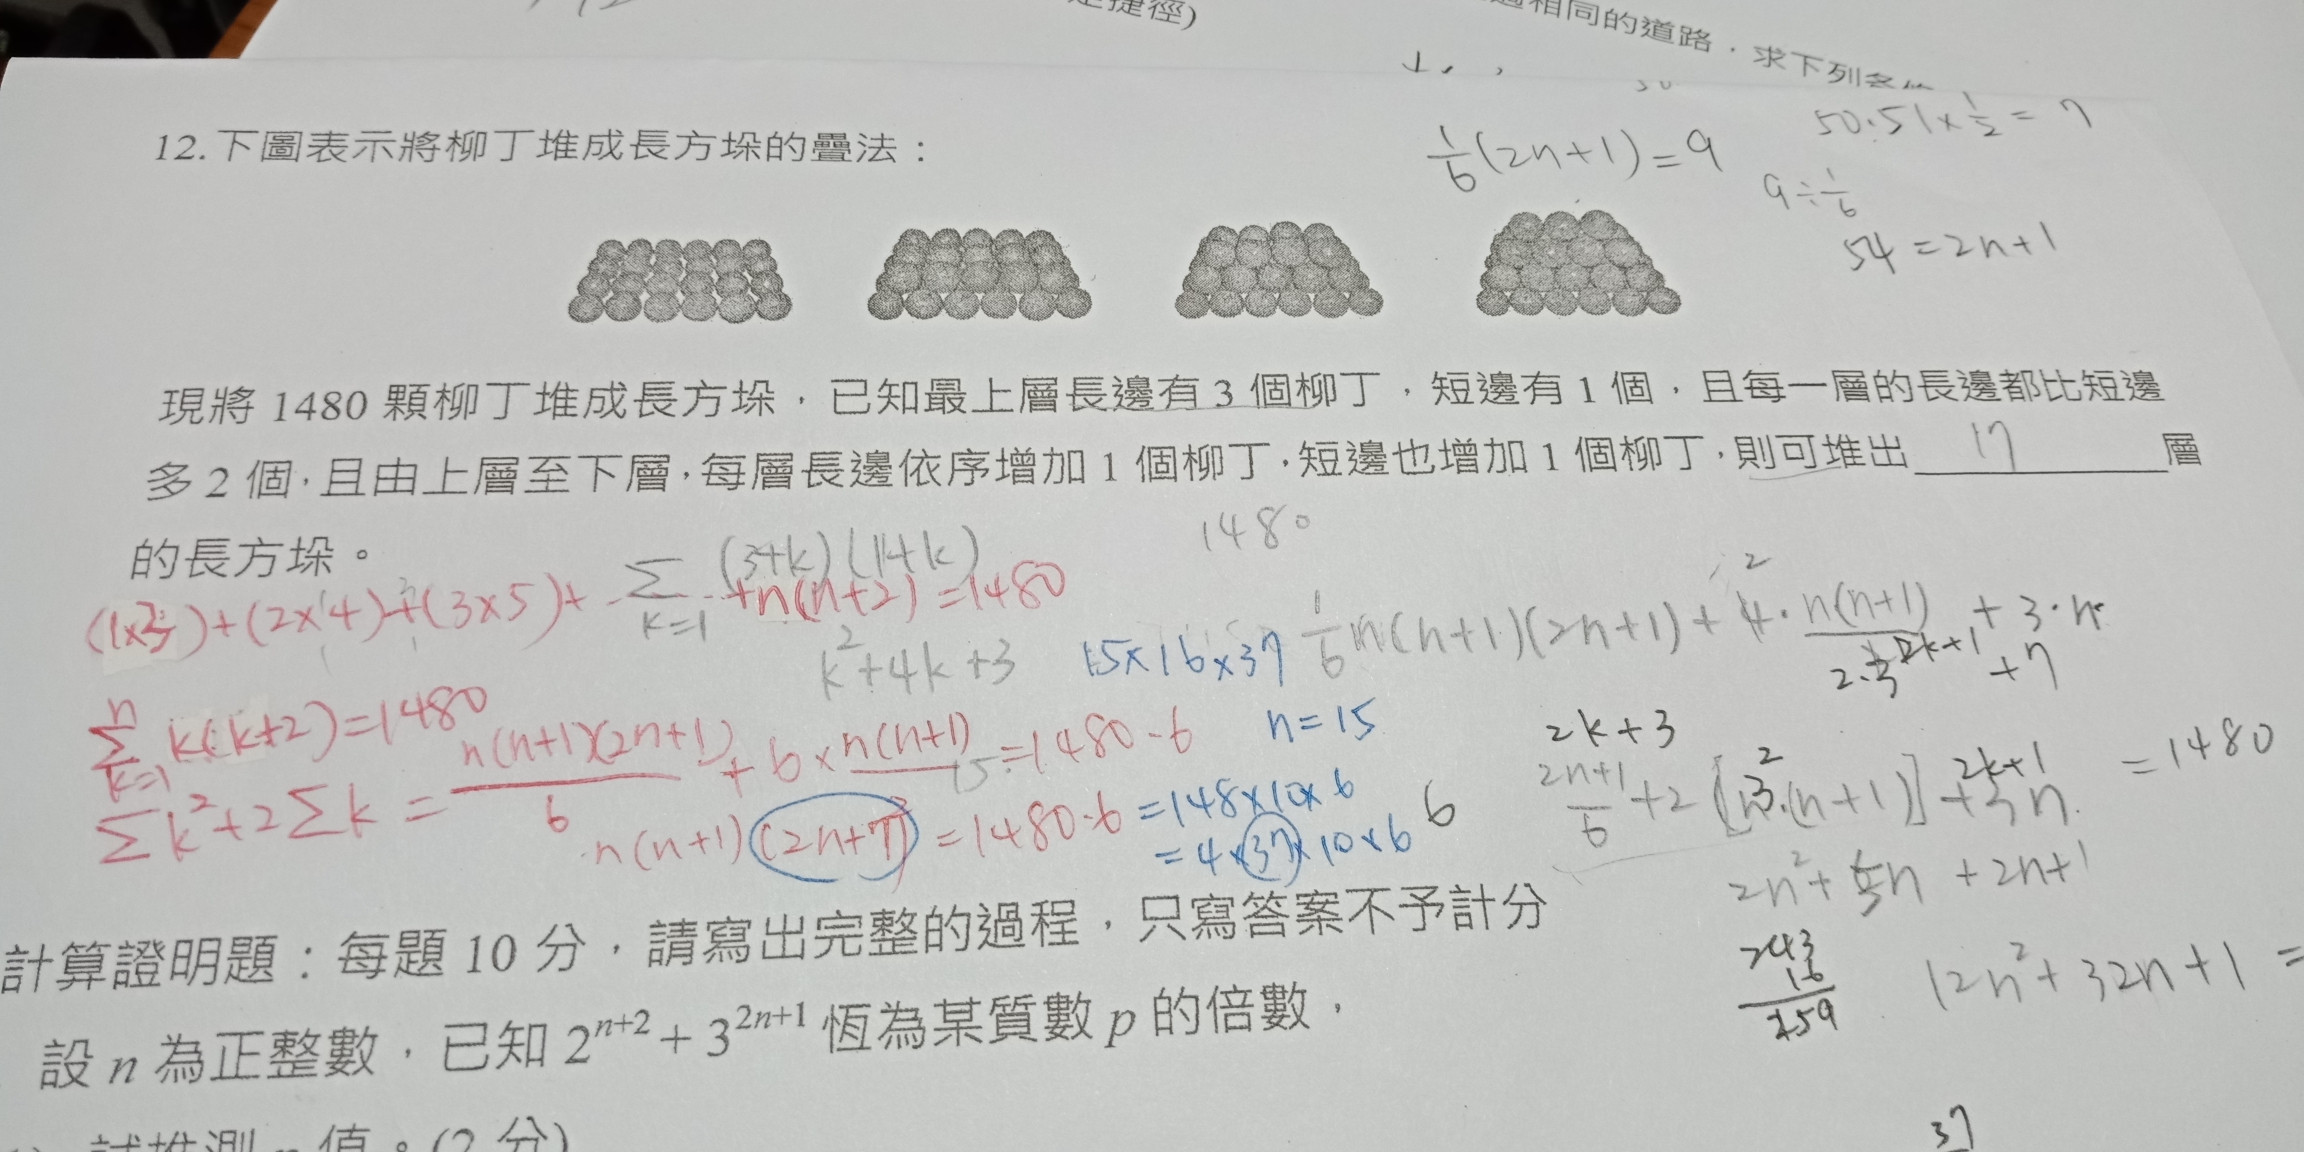 是捷徑)
過相同的道路，求下列各
12.下圖表示將柳丁堆成長方垛的疊法：
1/6(2n+1)=9
50·51×1/2=
9÷1/6
54=2n+1
現將 1480 顆柳丁堆成長方垛，已知最上層長邊有 3 個柳丁，短邊有 1 個，且每一層的長邊都比短邊
多 2 個，且由上層至下層，每層長邊依序增加 1 個柳丁，短邊也增加 1 個柳丁，則可堆出 17 層
的長方垛。
1480
Σ k=1 (3+k)(1+k)
(1×3)+(2×4)+(3×5)+……+n(n+2)=1480
k²+4k+3
15×16×37
1/6 n(n+1)(2n+1)+4·n(n+1)/2+3·n
Σ k=1 n k(k+2)=1480
n=15
2k+3
Σk²+2Σk=n(n+1)(2n+1)/6+6×n(n+1)=1480·6
=1480
n(n+1)(2n+7)=1480·6=148×10×6
=4×37×10×6
6
2n²+5n+2n+1
計算證明題：每題 10 分，請寫出完整的過程，只寫答案不予計分
243
16
259
12n²+32n+1=
設 n 為正整數，已知 2^{n+2}+3^{2n+1} 恆為某質數 p 的倍數，
試推測 p 值。(2 分)
37